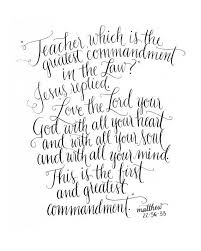 Teacher which is the
greatest commandment
in the Law?"
Jesus replied,
Love the Lord your
God with all your heart
and with all your soul
and with all your mind.
This is the first
and greatest
commandment. matthew
22:36-38